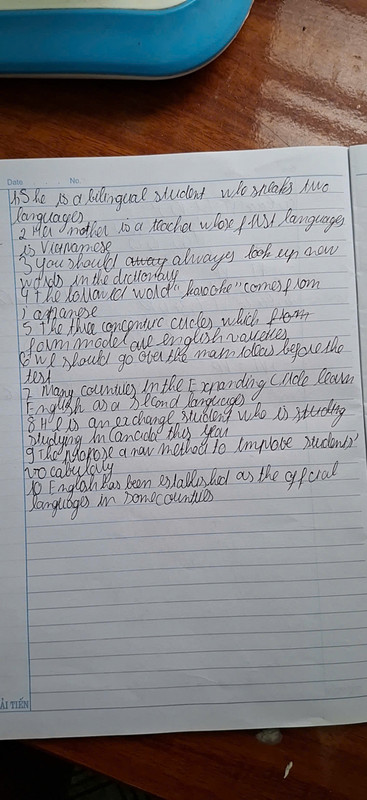 Date No.
1, She is a bilingual student who speaks two
languages
2 Her mother is a teacher whose first languages
is Vietnamese
3 you should away always look up new
words in the dictionary
4 The word "karaoke" comes from
Japanese
5 The three concentric circles which form
form model are english varieties
6 we should go over the main ideas before the
test
7 Many countries In the Expanding Circle learn
English as a second languages
8 He is an exchange student who is studing
studying In Canada this year
9 The propose a new method to improve students'
vocabulary
10 English has been established as the official
languages in some countries
ẢI TIẾN